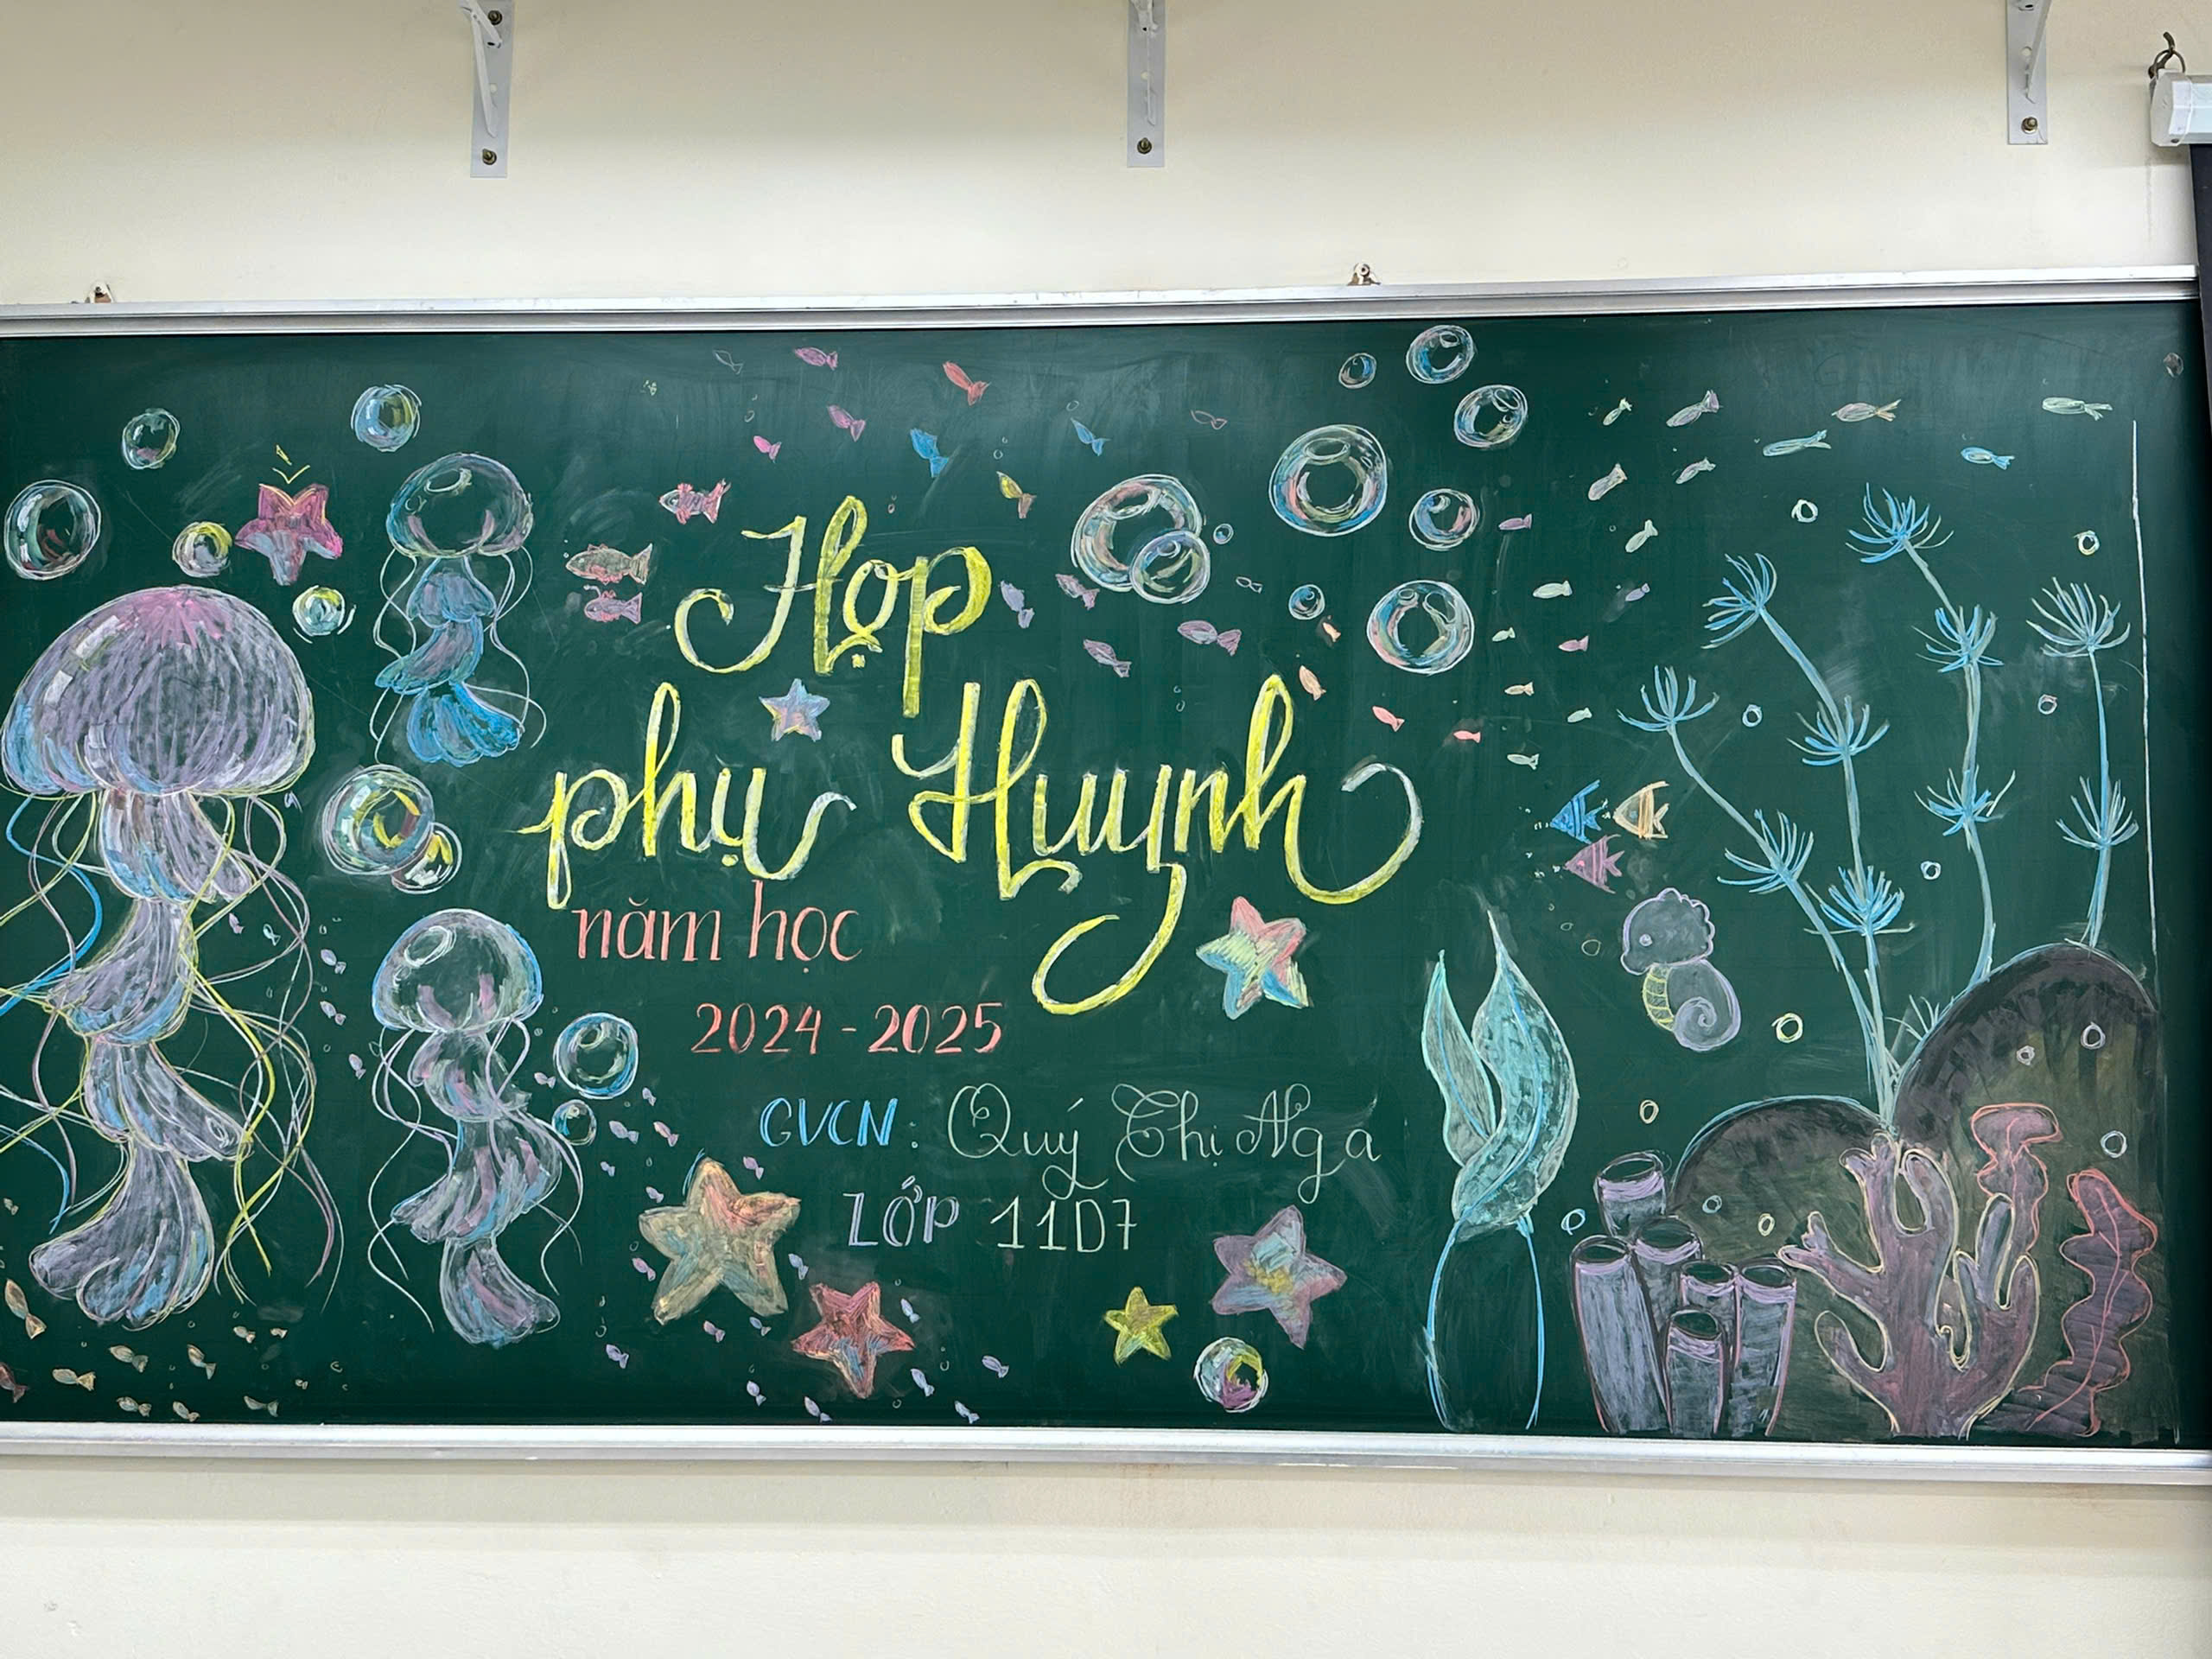 Họp
phụ Huynh
năm học
2024 - 2025
GVCN: Quý Thị Nga
LỚP 11D7